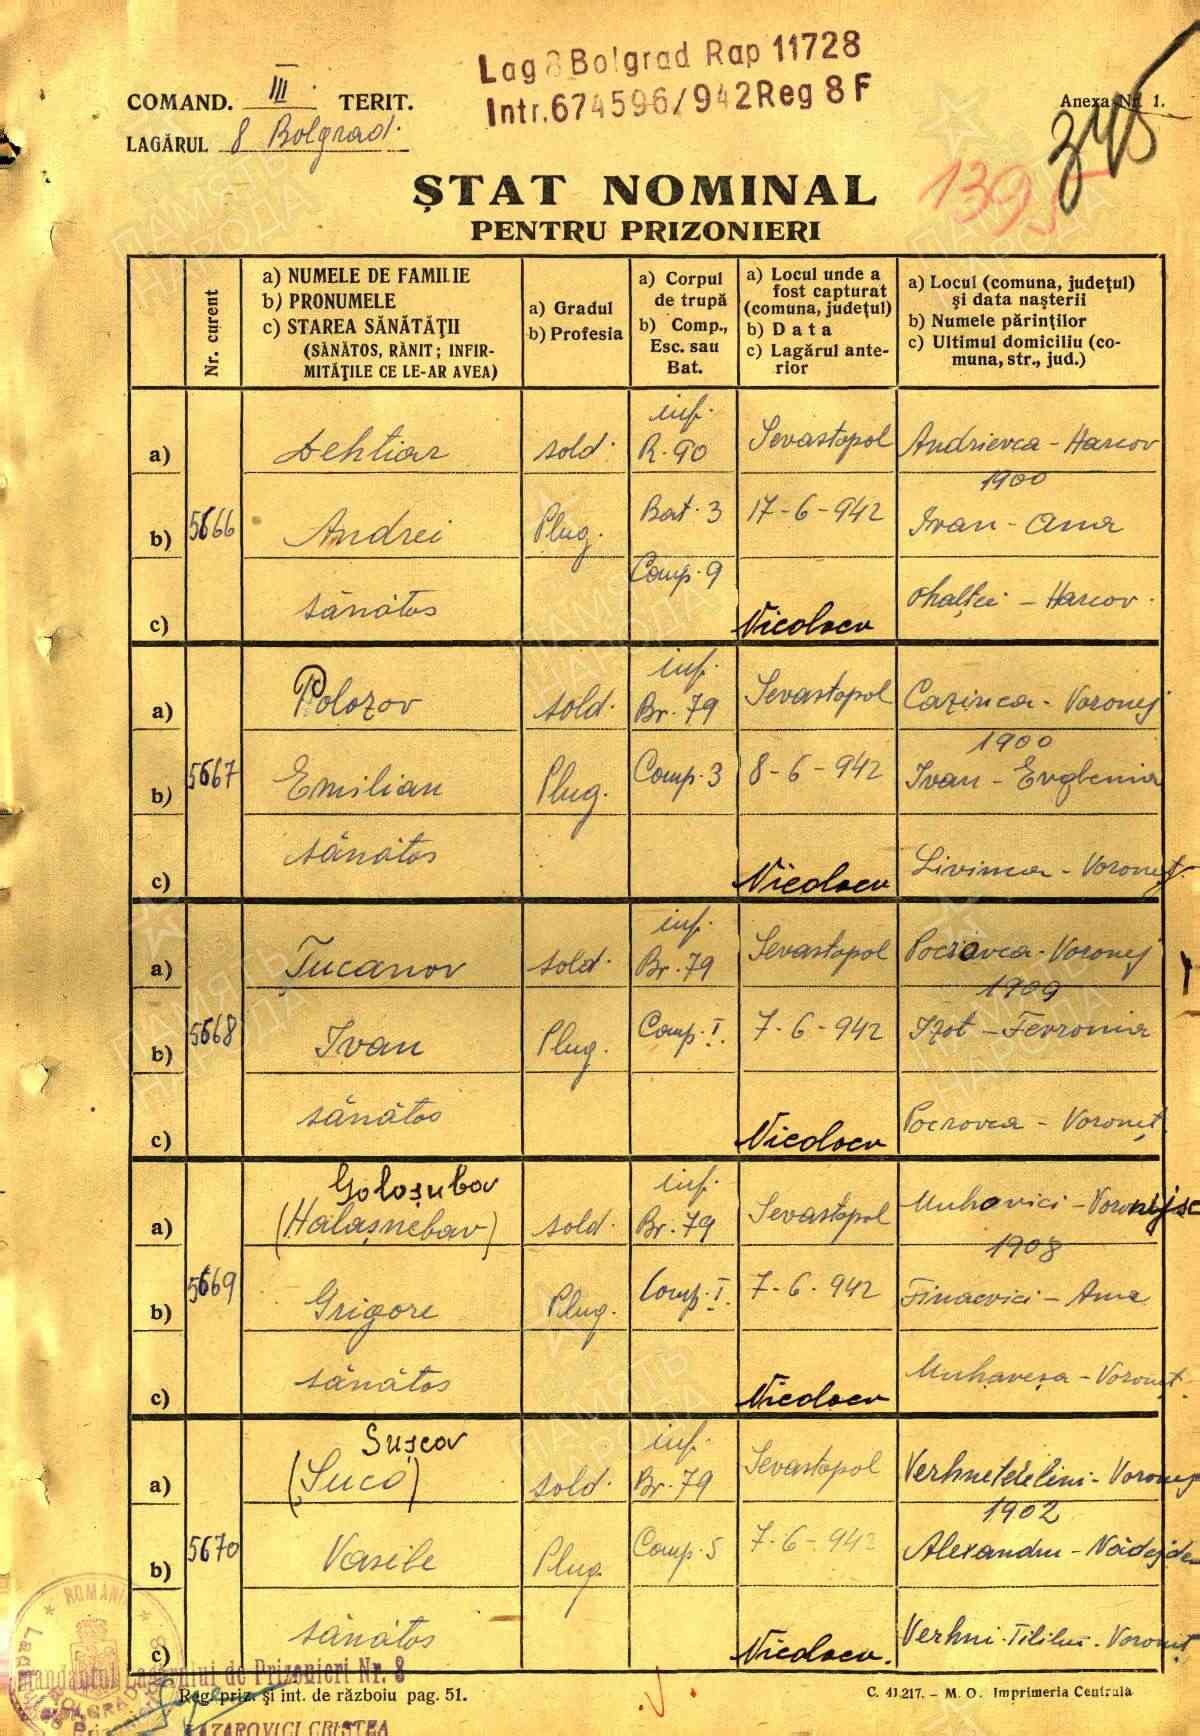 Lag 8 Bolgrad Rap 11728
Intr. 674596/942 Reg 8 F
COMAND. III TERIT.
Anexa Nr. 1.
LAGĂRUL 8 Bolgrad.
345
1395
ȘTAT NOMINAL
PENTRU PRIZONIERI
Nr. curent
a) NUMELE DE FAMILIE
b) PRONUMELE
c) STAREA SĂNĂTĂȚII
(SĂNĂTOS, RĂNIT; INFIR-
MITĂȚILE CE LE-AR AVEA)
a) Gradul
b) Profesia
a) Corpul
de trupă
b) Comp.,
Esc. sau
Bat.
a) Locul unde a
fost capturat
(comuna, județul)
b) Data
c) Lagărul ante-
rior
a) Locul (comuna, județul)
și data nașterii
b) Numele părinților
c) Ultimul domiciliu (co-
muna, str., jud.)
a) Dehtiar sold. inf. R. 90 Sevastopol Andrievca - Harcov
1900
5666
b) Andrei Plug. Bat. 3 17-6-942 Ivan - Ana
Comp. 9
c) sănătos Nicolaev - Harcov.
a) Polozov sold. inf. Br. 79 Sevastopol Cazinca - Voronej
1900
5667
b) Emilian Plug. Comp. 3 8-6-942 Ivan - Evghenia
c) sănătos Nicolaev Livinca - Voroneț
a) Țucanov sold. inf. Br. 79 Sevastopol Pocrovca - Voronej
1909
5668
b) Ivan Plug. Comp. I. 7-6-942 Izot - Fevronia
c) sănătos Nicolaev Pocrovca - Voroneț
Goloșubov
a) (Halașnebav) sold. inf. Br. 79 Sevastopol Muhovici - Voronejsc
1908
5669
b) Grigore Plug. Comp. I. 7-6-942 Finaevici - Ana
c) sănătos Nicolaev Muhaveșa - Voroneț.
Sușcov
a) (Suco) sold. inf. Br. 79 Sevastopol Verhnetelelini - Voronej
1902
5670
b) Vasile Plug. Comp. 5 7-6-942 Alexandru - Nădejdea
c) sănătos Nicolaev. Verhni-Tililui - Voroneț
ROMANIA
Comandantul Lagărului de Prizonieri Nr. 8
Reg. priz. și int. de războiu pag. 51.
C. 41.217. - M. O. Imprimeria Centrala
LAZAROVICI CRISTEA
ПАМЯТЬ НАРОДА